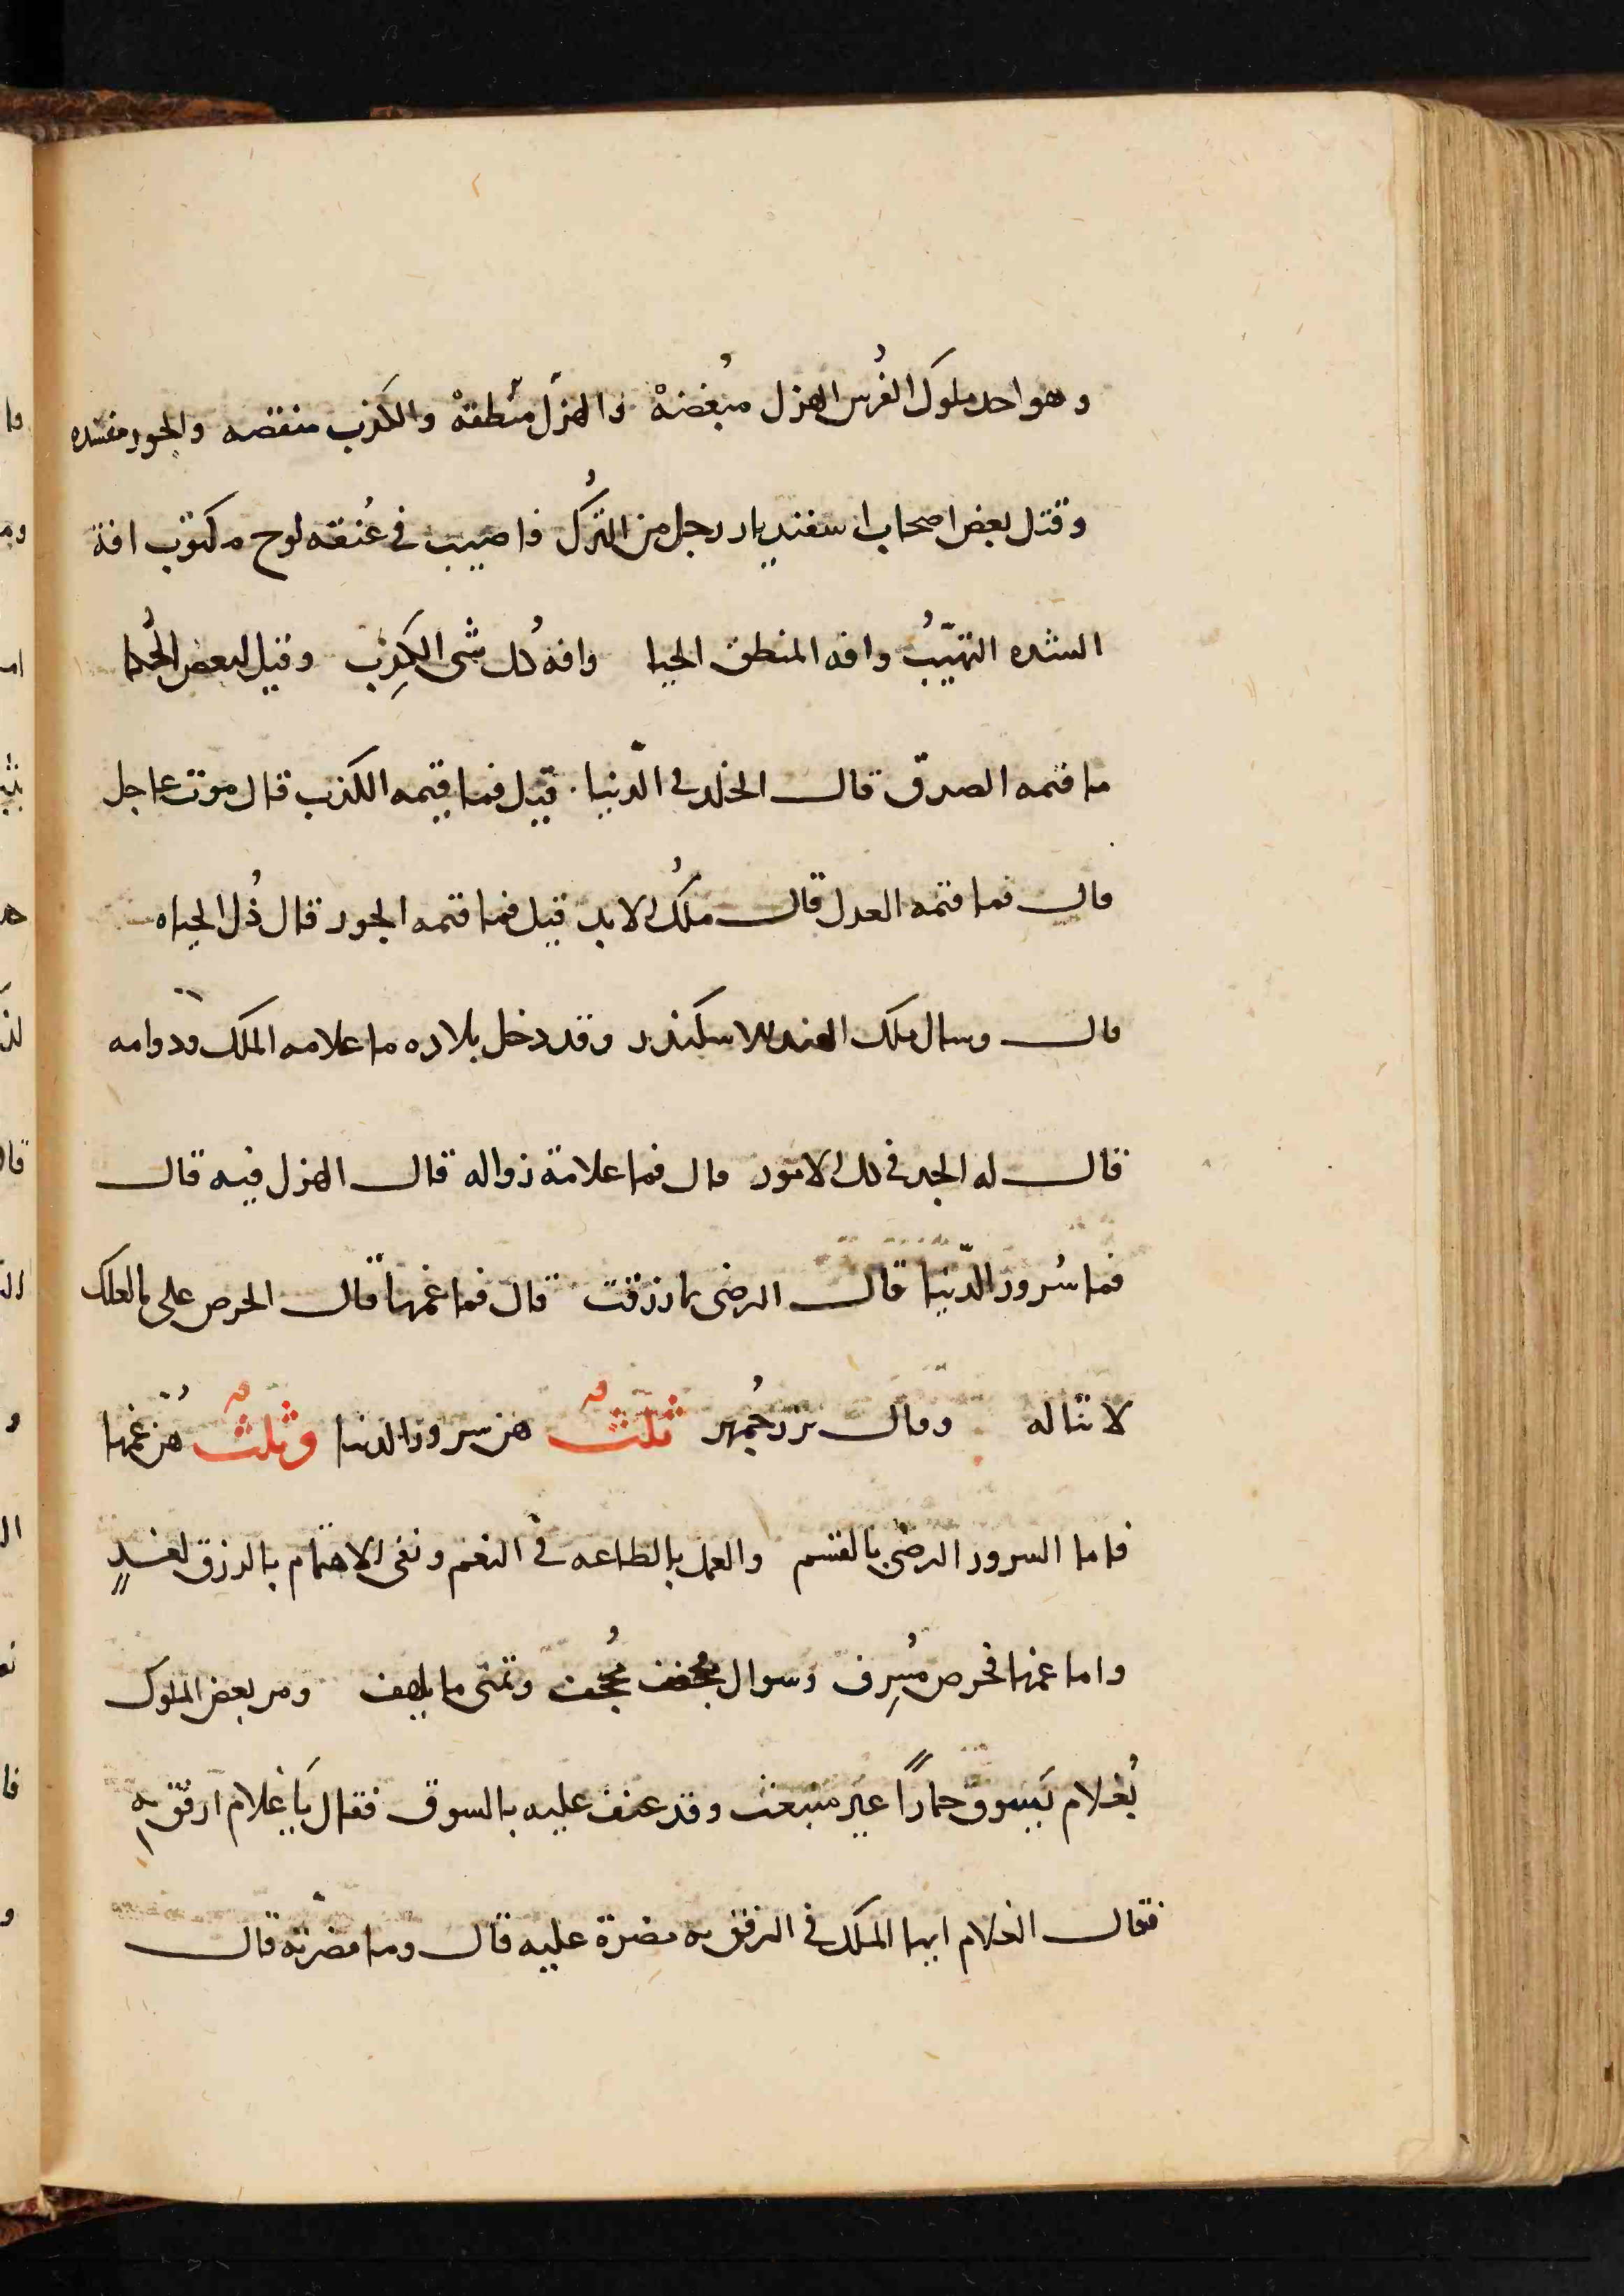 وهو احد ملوك الفُرس الهزل مبُغضهْ والهزل منطقهْ والكذب منقصه والجور مفسده
وقتل بعض اصحاب اسفنديار رجل من التُرك فاصيب في عُنقه لوح مكتوب افة
الشده التهيّبُ وافه المنطق الحيا وافه كُل شى الكَذِب وقيل لبعض الحُكما
ما قيمه الصدق قال الخلد في الدّنيا قيل فما قيمه الكذب قال موت عاجل
قال فما قيمه العدل قال ملكُ الابد قيل فما قيمه الجور قال ذُل الحياه
قال وسال ملك الهند للاسكندر وقد دخل بلاده ما علامه الملك ودوامه
قال له الجد في كل الامور قال فما علامة زواله قال الهزل فيه قال
فما سُرور الدّنيا قال الرضى بما رزقت قال فما غمها قال الحرص على ما لعلك
لا تناله وقال بزرجُمهر ثلثٌ هن سرور الدنيا وثلثٌ هُن غمها
فاما السرور الرضى بالقسم والعمل بالطاعه في النعم ونفى الاهتمام بالرزق لغدٍ
واما غمها فحرص مُسرِف وسوال مجحف مُجحف وتمنى ما يلهف ومر بعض الملوك
بُغلام يَسوق حماراً غير منبعث وقد عنف عليه بالسوق فقال يَا غلام ارفق به
فقال الغلام ايها الملك في الرفق به مضرة عليه قال وما مضرته قال